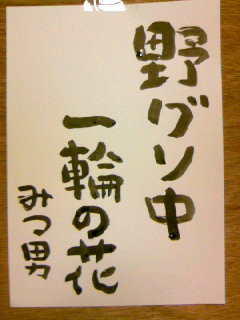 野グソ中
一輪の花
みつ男